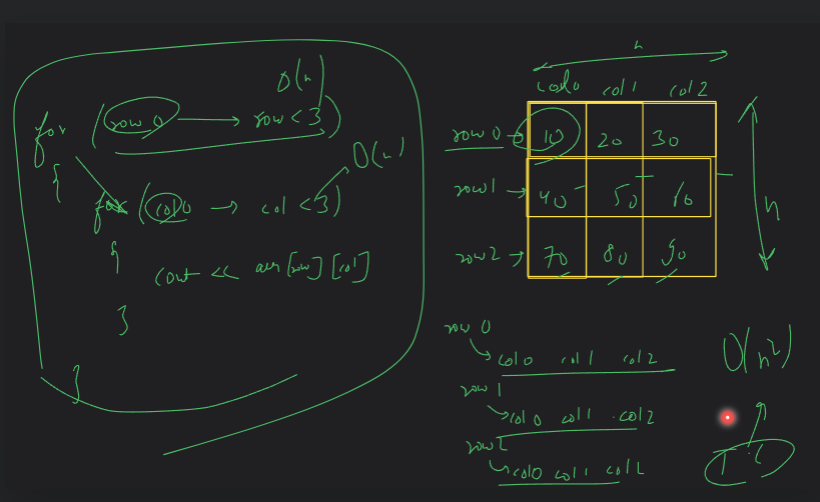 O(n)
for (row 0 → row < 3)
{
O(n)
for (col 0 → col < 3)
{
cout << arr[row][col]
}
}
n
col0 col1 col2
row 0 → 10 20 30
row1 → 40 50 60
row2 → 70 80 90
n
row 0
col0 col1 col2
row 1
col0 col1 col2
row2
col0 col1 col2
O(n²)
T.C